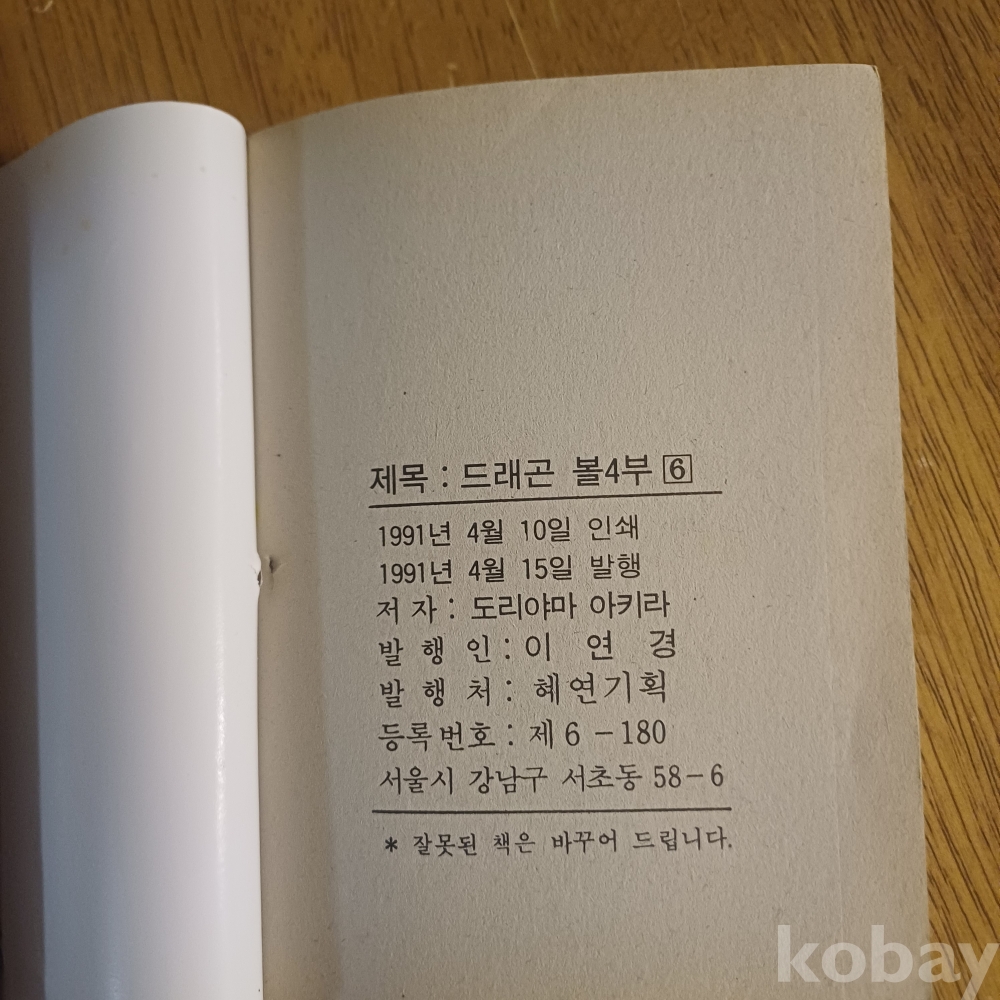 제목 : 드래곤 볼4부 6
1991년 4월 10일 인쇄
1991년 4월 15일 발행
저 자 : 도리야마 아키라
발 행 인 : 이 연 경
발 행 처 : 혜연기획
등록번호 : 제 6 - 180
서울시 강남구 서초동 58 - 6
* 잘못된 책은 바꾸어 드립니다.
kobay